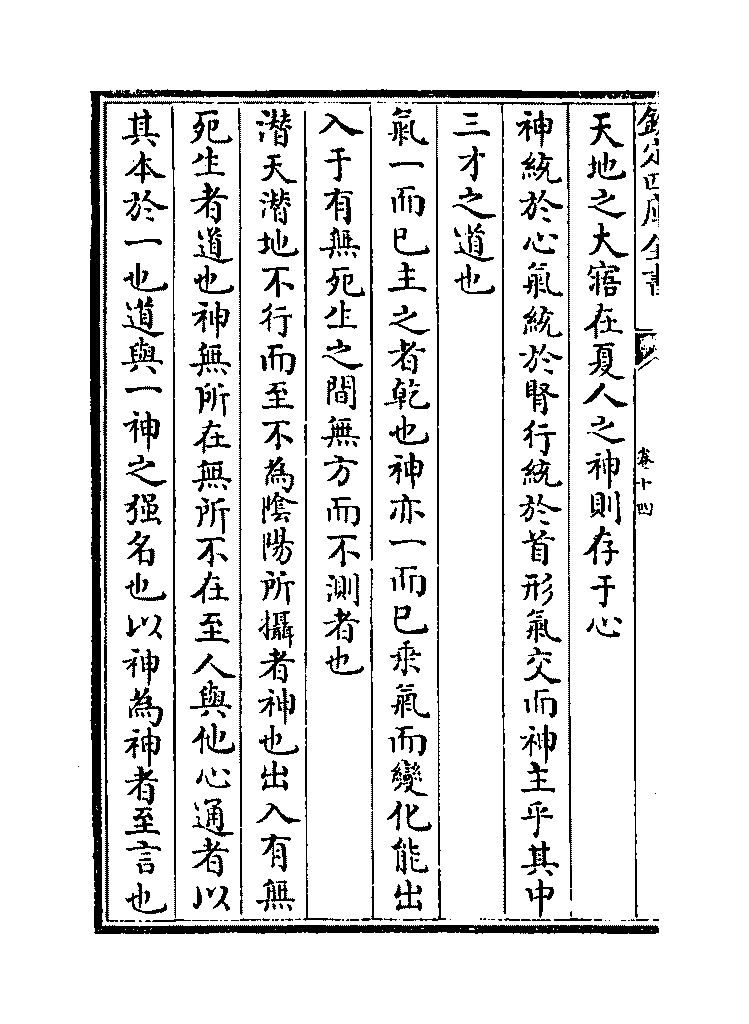 欽定四庫全書
卷十四
天地之大寤在夏人之神則存于心
神統於心氣統於腎行統於首形氣交而神主乎其中
三才之道也
氣一而已主之者乾也神亦一而已乘氣而變化能出
入于有無死生之間無方而不測者也
潛天潛地不行而至不為陰陽所攝者神也出入有無
死生者道也神無所在無所不在至人與他心通者以
其本於一也道與一神之强名也以神為神者至言也